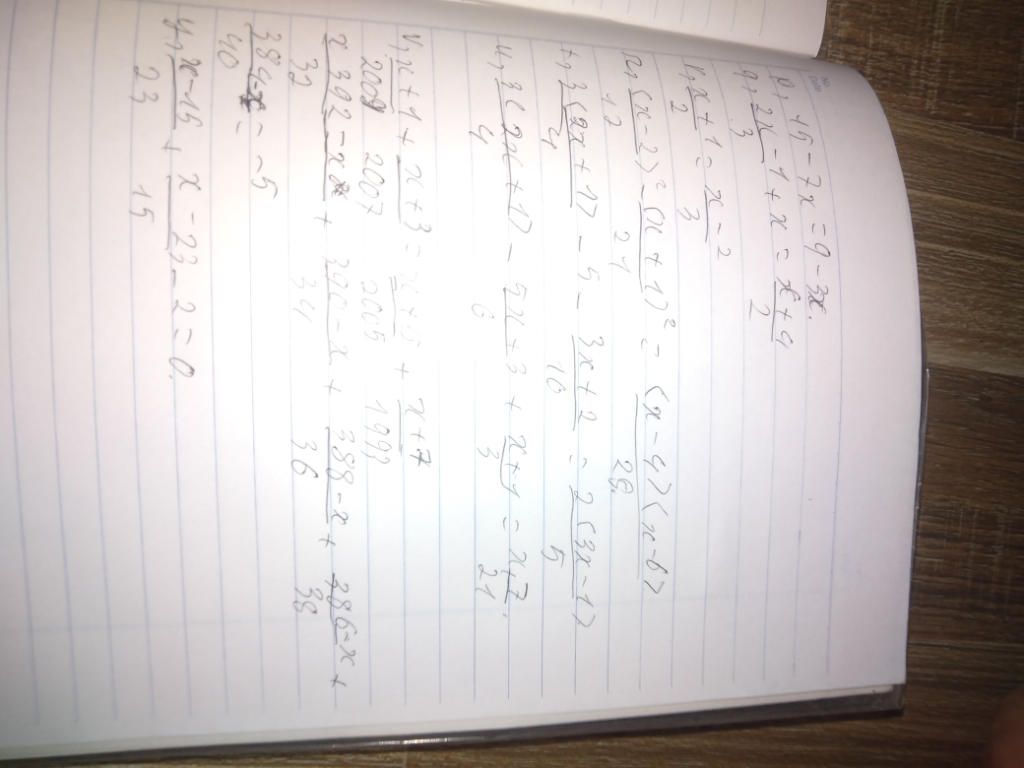 p, 15 - 7x = 9 - 3x.
q, 2x/3 - 1 + x = x+4/2
r, x+1/2 = x/3 - 2
(x-2)²/12 - (x+1)²/21 = (x-4)(x-6)/28.
t, 3(2x+1)/4 - 5 - 3x+2/10 = 2(3x-1)/5
u, 3(2x+1)/4 - 5x+3/6 + x+1/3 = x+7/21
v, x+1/2009 + x+3/2007 = x+5/2005 + x+7/1993
x, 392-x/32 + 390-x/34 + 388-x/36 + 386-x/38 +
384-x/40 = -5
y, x-15/23 + x-23/15 - 2 = 0.